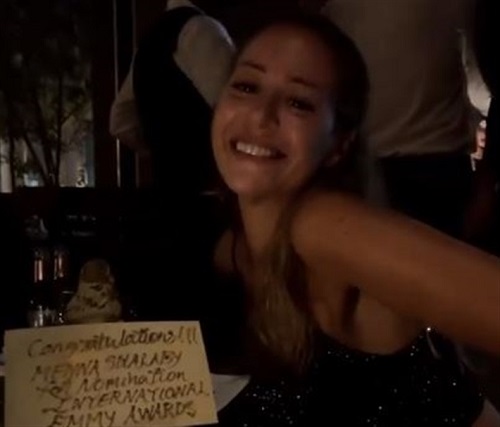 Congratulations!!!
MENNA SHALABY
for Nomination
INTERNATIONAL
EMMY AWARDS